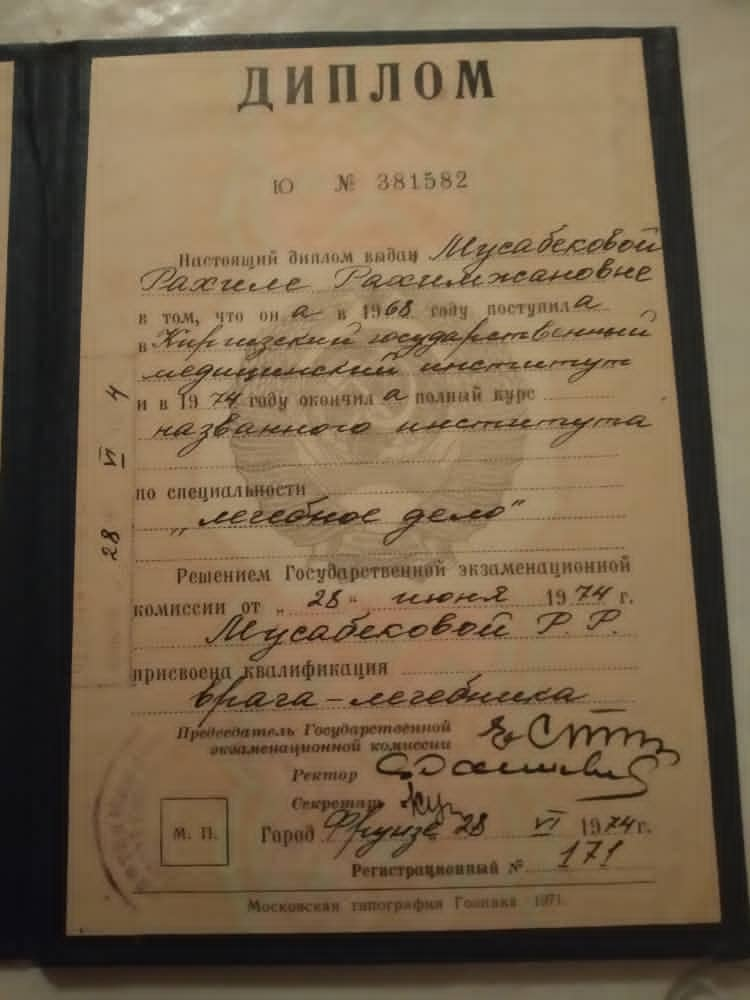 ДИПЛОМ
Ю № 381582
Настоящий диплом выдан Мусабековой
Рахиле Рахимжановне
в том, что он а в 1968 году поступил а
в Киргизский государственный
медицинский институт
и в 1974 году окончил а полный курс
названного института
по специальности
„лечебное дело"
Решением Государственной экзаменационной
комиссии от „28" июня 1974 г.
Мусабековой Р. Р.
присвоена квалификация
врача-лечебника
Председатель Государственной
экзаменационной комиссии
Ректор
Секретарь
М. П.
Город Фрунзе 28 VI 1974 г.
Регистрационный № 171
Московская типография Гознака 1971.
28 VI